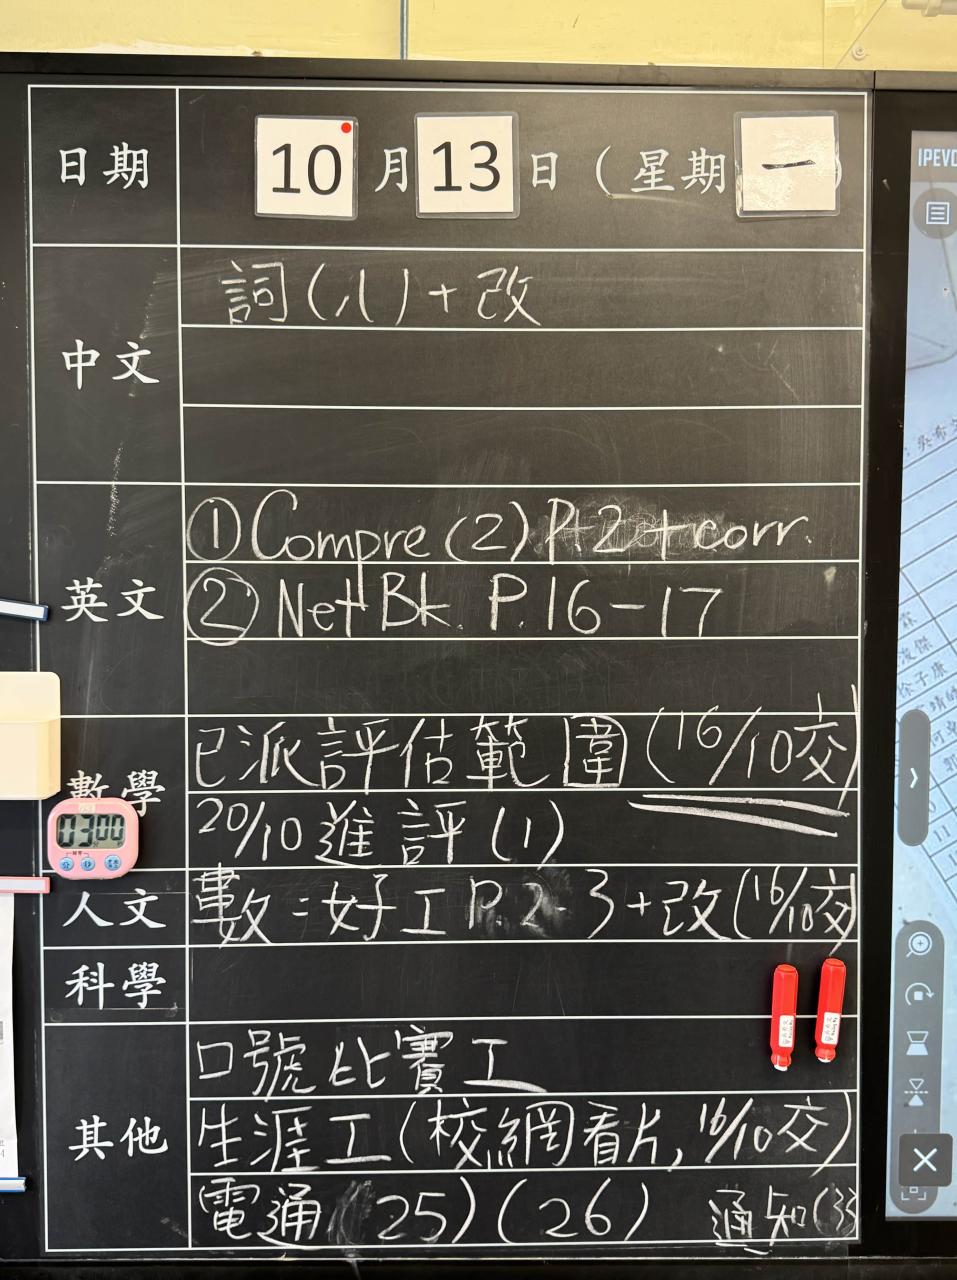 日期 10 月 13 日 (星期 一 )
中文 詞(八)+改
英文 ① Compre (2) P.2 + corr.
② Net Bk. P.16-17
數學 已派評估範圍(16/10交)
20/10 進評(1)
人文 數:好工 P.2-3+改(16/10交)
科學
其他 口號比賽工
生涯工(校網看片, 16/10交)
電通(25)(26) 通知(33
03 00
IPEVO
浚傑
徐子康
11